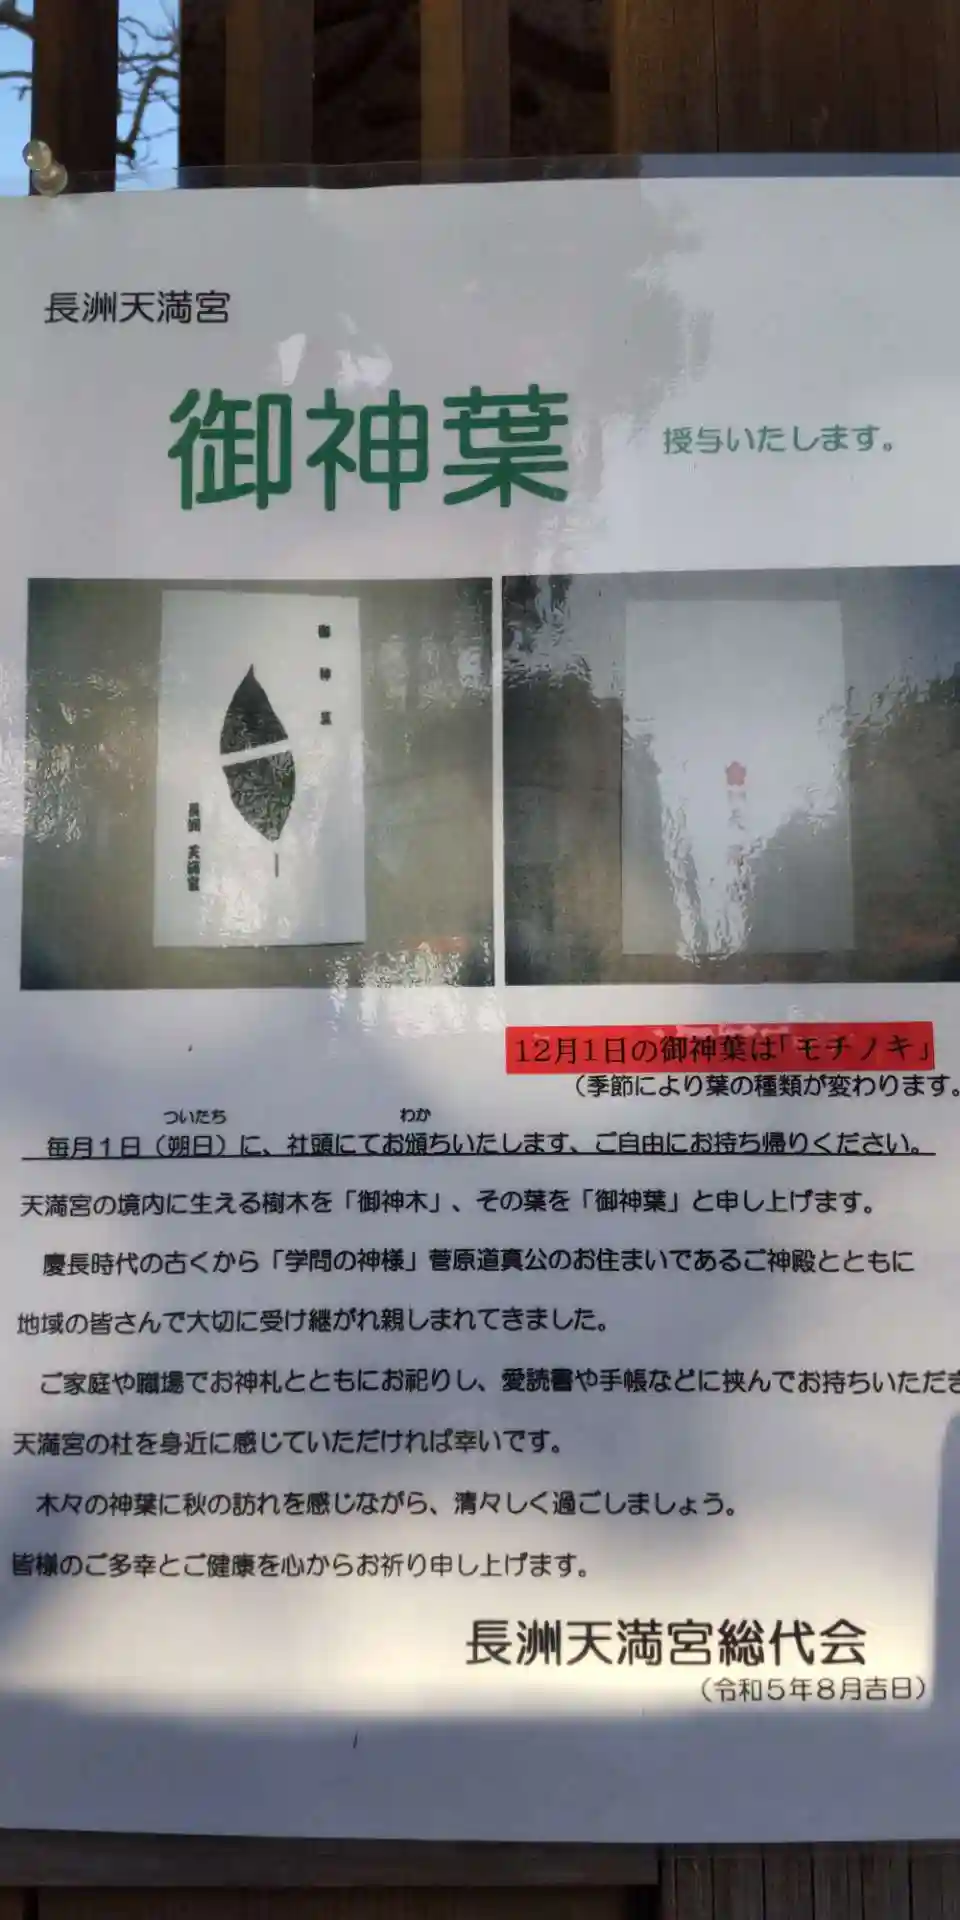 長洲天満宮
御神葉 授与いたします。
御神葉
長洲 天満宮
12月1日の御神葉は「モチノキ」
(季節により葉の種類が変わります。
ついたち わか
毎月１日（朔日）に、社頭にてお頒ちいたします、ご自由にお持ち帰りください。
天満宮の境内に生える樹木を「御神木」、その葉を「御神葉」と申し上げます。
慶長時代の古くから「学問の神様」菅原道真公のお住まいであるご神殿とともに
地域の皆さんで大切に受け継がれ親しまれてきました。
ご家庭や職場でお神札とともにお祀りし、愛読書や手帳などに挟んでお持ちいただき
天満宮の杜を身近に感じていただければ幸いです。
木々の神葉に秋の訪れを感じながら、清々しく過ごしましょう。
皆様のご多幸とご健康を心からお祈り申し上げます。
長洲天満宮総代会
（令和５年８月吉日）